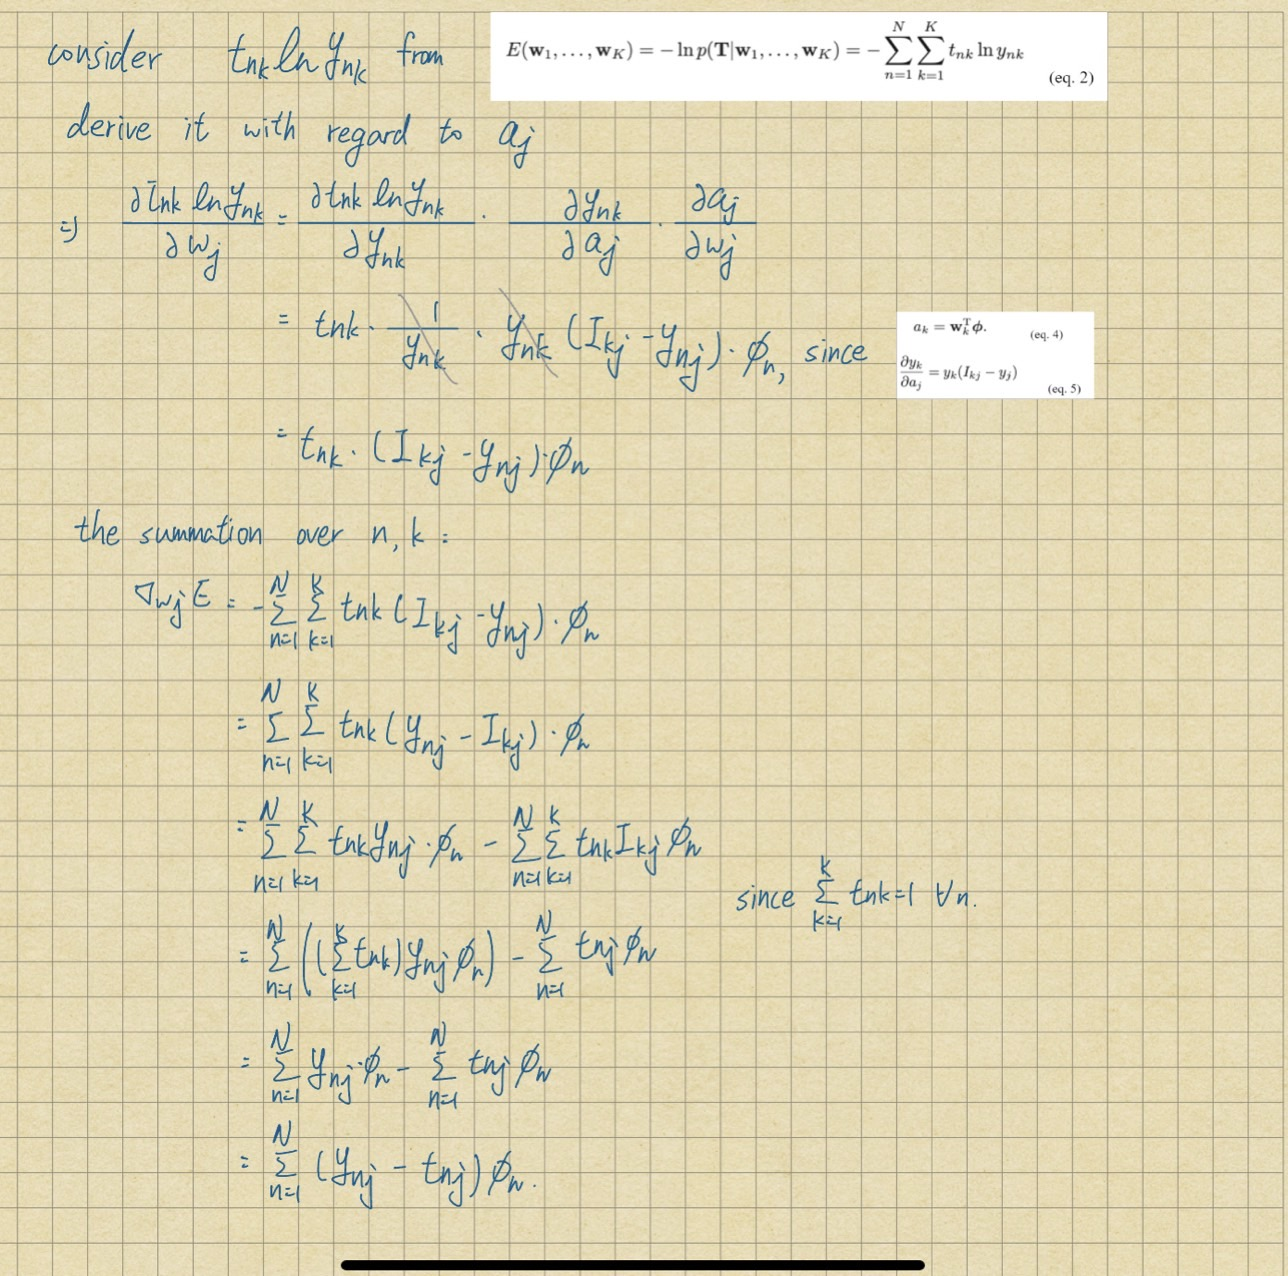 consider t_nk ln y_nk from
E(w₁, . . . , w_K) = − ln p(T|w₁, . . . , w_K) = − ∑_{n=1}^{N} ∑_{k=1}^{K} t_nk ln y_nk (eq. 2)
derive it with regard to a_j
⇒ ∂t_nk ln y_nk / ∂w_j = ∂t_nk ln y_nk / ∂y_nk · ∂y_nk / ∂a_j · ∂a_j / ∂w_j
= t_nk · 1 / y_nk · y_nk (I_kj − y_nj) · ϕ_n, since
a_k = w_k^T ϕ. (eq. 4)
∂y_k / ∂a_j = y_k(I_kj − y_j) (eq. 5)
= t_nk · (I_kj − y_nj) · ϕ_n
the summation over n, k :
∇_{w_j} E = − ∑_{n=1}^{N} ∑_{k=1}^{K} t_nk (I_kj − y_nj) · ϕ_n
= ∑_{n=1}^{N} ∑_{k=1}^{K} t_nk (y_nj − I_kj) · ϕ_n
= ∑_{n=1}^{N} ∑_{k=1}^{K} t_nk y_nj · ϕ_n − ∑_{n=1}^{N} ∑_{k=1}^{K} t_nk I_kj ϕ_n
since ∑_{k=1}^{K} t_nk = 1 ∀n.
= ∑_{n=1}^{N} ((∑_{k=1}^{K} t_nk) y_nj ϕ_n) − ∑_{n=1}^{N} t_nj ϕ_n
= ∑_{n=1}^{N} y_nj · ϕ_n − ∑_{n=1}^{N} t_nj ϕ_n
= ∑_{n=1}^{N} (y_nj − t_nj) ϕ_n.